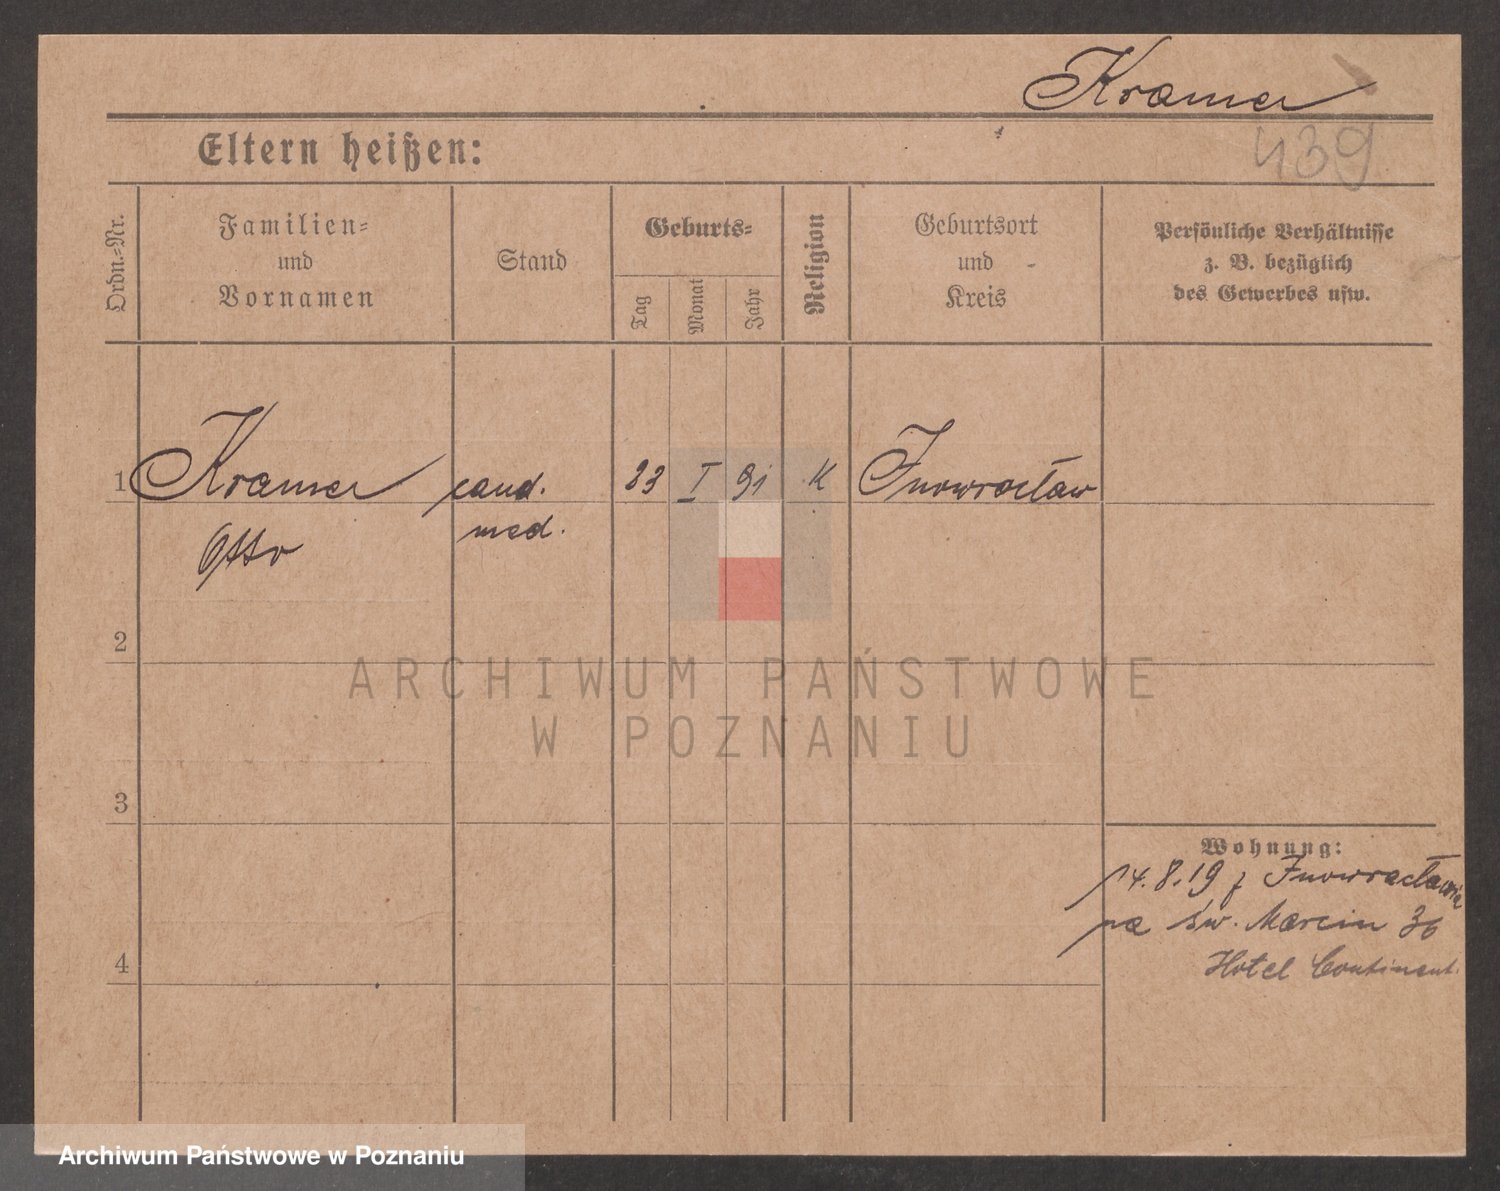 Kramer
439
Eltern heißen:
Ordn.=Nr.
Familien=
und
Vornamen
Stand
Geburts=
Tag
Monat
Jahr
Religion
Geburtsort
und
Kreis
Persönliche Verhältnisse
z. B. bezüglich
des Gewerbes usw.
1 Kramer cand. 23 I 91 K Inowrocław
Otto med.
2
ARCHIWUM PAŃSTWOWE
W POZNANIU
3
Wohnung:
14.8.19 z Inowrocławia
na św. Marcin 36
Hotel Continent.
4
Archiwum Państwowe w Poznaniu